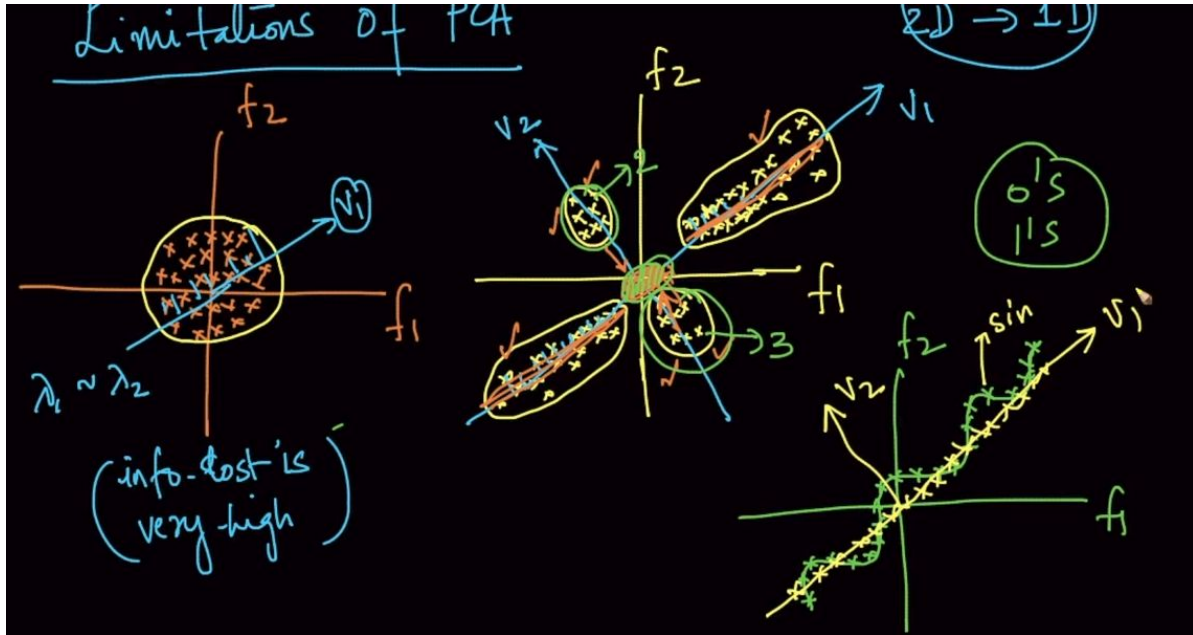 Limitations of PCA
2D → 1D
f2
v1
λ1 ~ λ2
f1
(info-lost is
very high)
f2
v2
v1
2
f1
3
0's
1's
sin
f2
v1
v2
f1